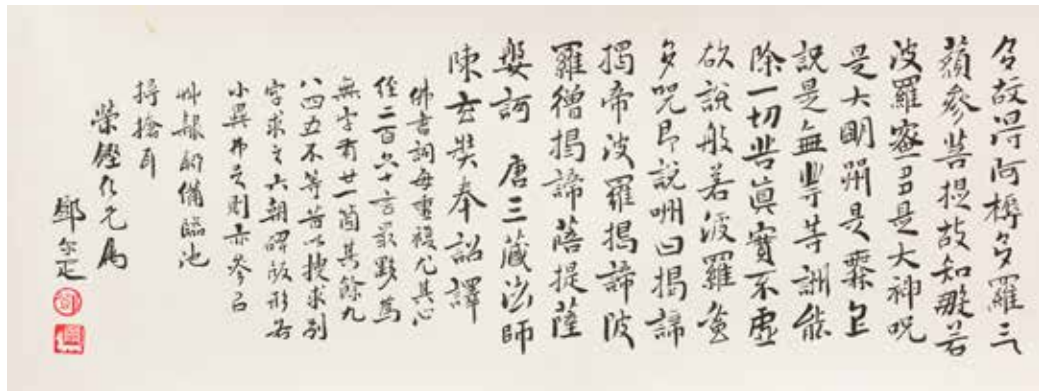 多故淂阿耨多羅三
藐參菩提故知般若
波羅蜜多是大神呪
是大明咒是霖上
說是無等等詶能
除一切苦真實不虛
欲說般若波羅蜜
多呪即說咒曰揭諦
揭帝波羅揭諦波
羅僧揭諦菩提薩
婆訶 唐三藏法師
陳玄奘奉詔譯
佛書詞每重複尤其心
經二百六十言最夥爲
無字有廿一箇其餘九
八四五不等昔以搜求別
字求之六朝碑版形若
小異弗足則亦參以
艸隸聊備臨池
撏撦耳
榮鏗仁兄爲
鄧尔疋